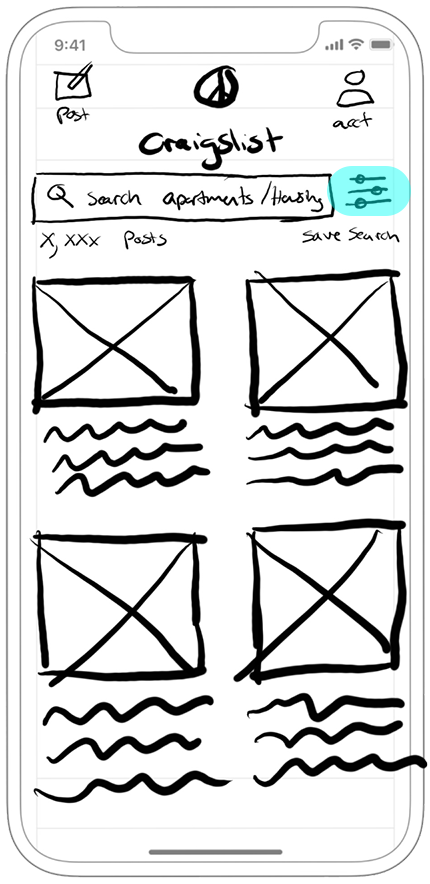 9:41
Post
acct
Craigslist
Search apartments/Housing
X,XXX Posts
Save Search